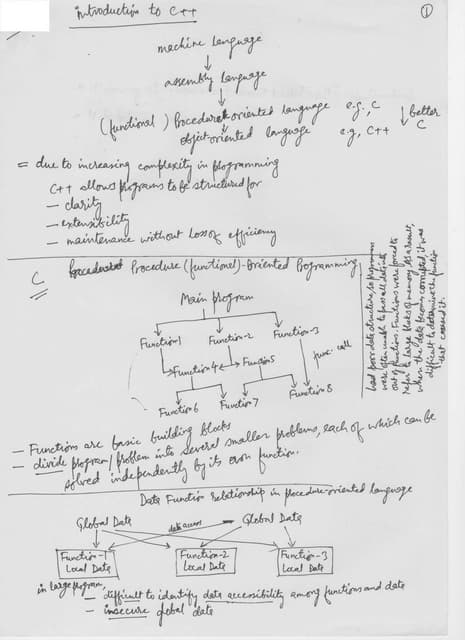 introduction to C++
①
machine language
↓
assembly language
↓
(functional) Procedure-oriented language e.g., C
↓ object-oriented language e.g., C++
↓ better C
= due to increasing complexity in programming
C++ allows programs to be structured for
— clarity
— extensibility
— maintenance without loss of efficiency
C Procedure (functional)-Oriented Programming
Main program
Function-1 Function-2 Function-3
func. call
Function4 Function5
Function6 Function7 Function8
had poor data structure, so programs
were often unable to pass all data into
out of functions. Functions were forced to
refer to large blocks of memory. As a result,
when the data became corrupted it was
difficult to determine the function
that caused it.
— Functions are basic building blocks
— divide program/problem into several smaller problems, each of which can be
solved independently by its own function.
Data Function relationship in procedure-oriented language
Global Data data access Global Data
Function-1 Function-2 Function-3
Local Data Local Data Local Data
in large program,
— difficult to identify data accessibility among functions and data
— insecure global data